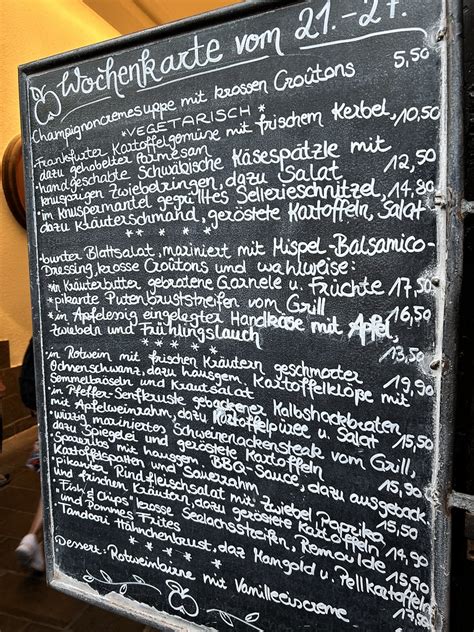 Wochenkarte vom 21.-27.
Champignoncremesuppe mit krossen Croûtons 5,50
*VEGETARISCH*
Frankfurter Kartoffelgemüse mit frischem Kerbel,
dazu gehobelter Parmesan 10,50
• handgeschabte Schwäbische Käsespätzle mit
knusprigen Zwiebelringen, dazu Salat 12,50
• im Knuspermantel gegrilltes Sellerieschnitzel,
dazu Kräuterschmand, geröstete Kartoffeln, Salat 14,80
* * * * *
bunter Blattsalat, mariniert mit Mispel-Balsamico-
Dressing, krosse Croûtons und wahlweise:
• in Kräuterbutter gebratene Garnele u. Früchte 17,50
• pikante Putenbruststreifen vom Grill 16,50
• in Apfelessig eingelegter Handkäse mit Apfel,
Zwiebeln und Frühlingslauch 13,50
* * * * *
• in Rotwein mit frischen Kräutern geschmorter
Ochsenschwanz, dazu hausgem. Kartoffelklöße mit
Semmelbröseln und Krautsalat 19,90
• in Pfeffer-Senfkruste gebackener Kalbshackbraten
mit Apfelweinrahm, dazu Kartoffelpüree u. Salat 15,50
• würzig mariniertes Schweinenackensteak vom Grill,
dazu Spiegelei und geröstete Kartoffeln 15,90
• Spareribs mit hausgem. BBQ-Sauce, dazu ausgeback.
Kartoffelspalten und Sauerrahm 15,50
• pikanter Rindfleischsalat mit Zwiebel, Paprika
und frischen Kräutern, dazu geröstete Kartoffeln 14,90
• "Fish & Chips" krosse Seelachsstreifen, Remoulde
und Pommes Frites 15,90
• Tandoori Hähnchenbrust, daz Mangold u. Pellkartoffeln 17,50
* * * * *
Dessert: Rotweinbirne mit Vanilleeiscreme